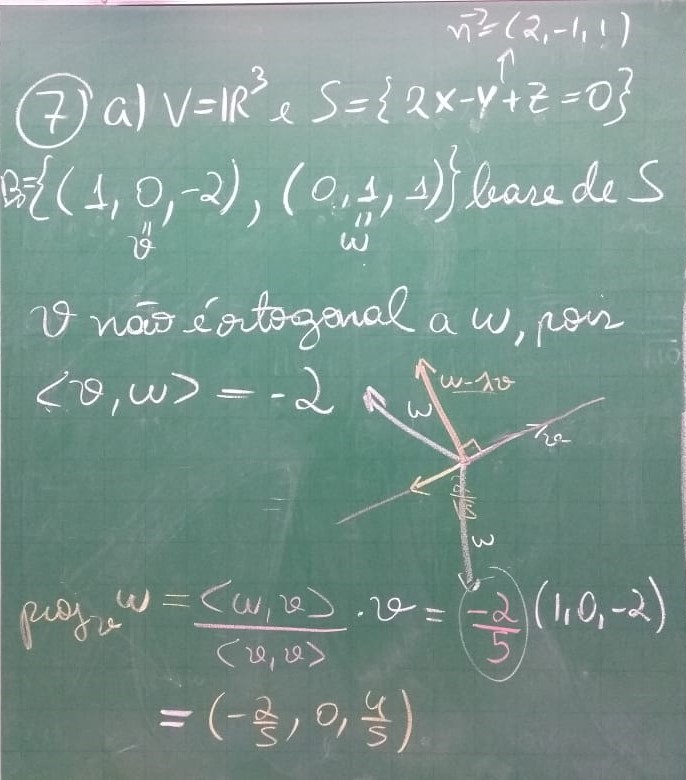 n⃗ = (2, -1, 1)
↑
7) a) V=ℝ³ e S={2x-y+z=0}
B={(1, 0, -2), (0, 1, 1)} base de S
"
v
"
w
v não é ortogonal a w, pois
<v, w> = -2
w-λv
w
w
proj_v w = <w, v> / <v, v> . v = -2/5 (1, 0, -2)
= (-2/5, 0, 4/5)